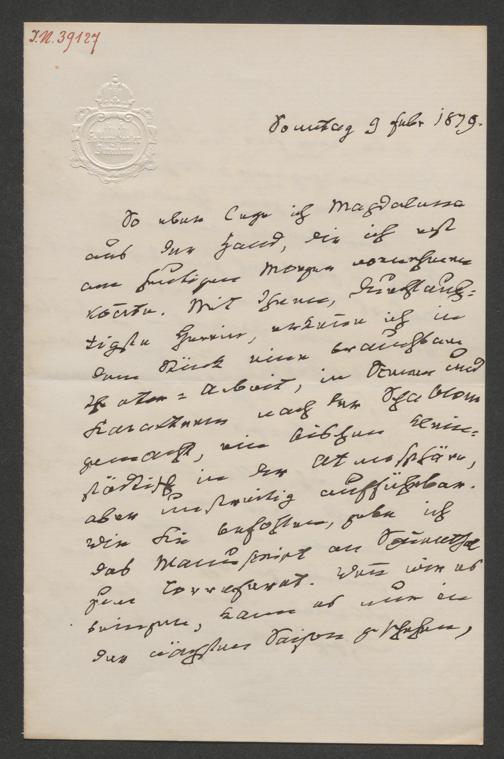 I.N. 39127
Sonntag 9 Febr 1879.
So eben lege ich Magdalena
aus der Hand, die ich erst
am heutigen Morgen vornehmen
konnte. Mit Ihnen, Durchlauch-
tigste Herrin, erkenne ich in
dem Stück eine brauchbare
Theater-Arbeit, in Tournure und
Karakteren nach der Schablone
gemacht, ein bischen klein-
städtisch in der Atmosphäre,
aber unstreitig aufführbar.
Wie Sie befohlen, gebe ich
das Manuscript an
zum Correferat. Wenn wir es
bringen, kann es nur in
der nächsten Saison geschehen,